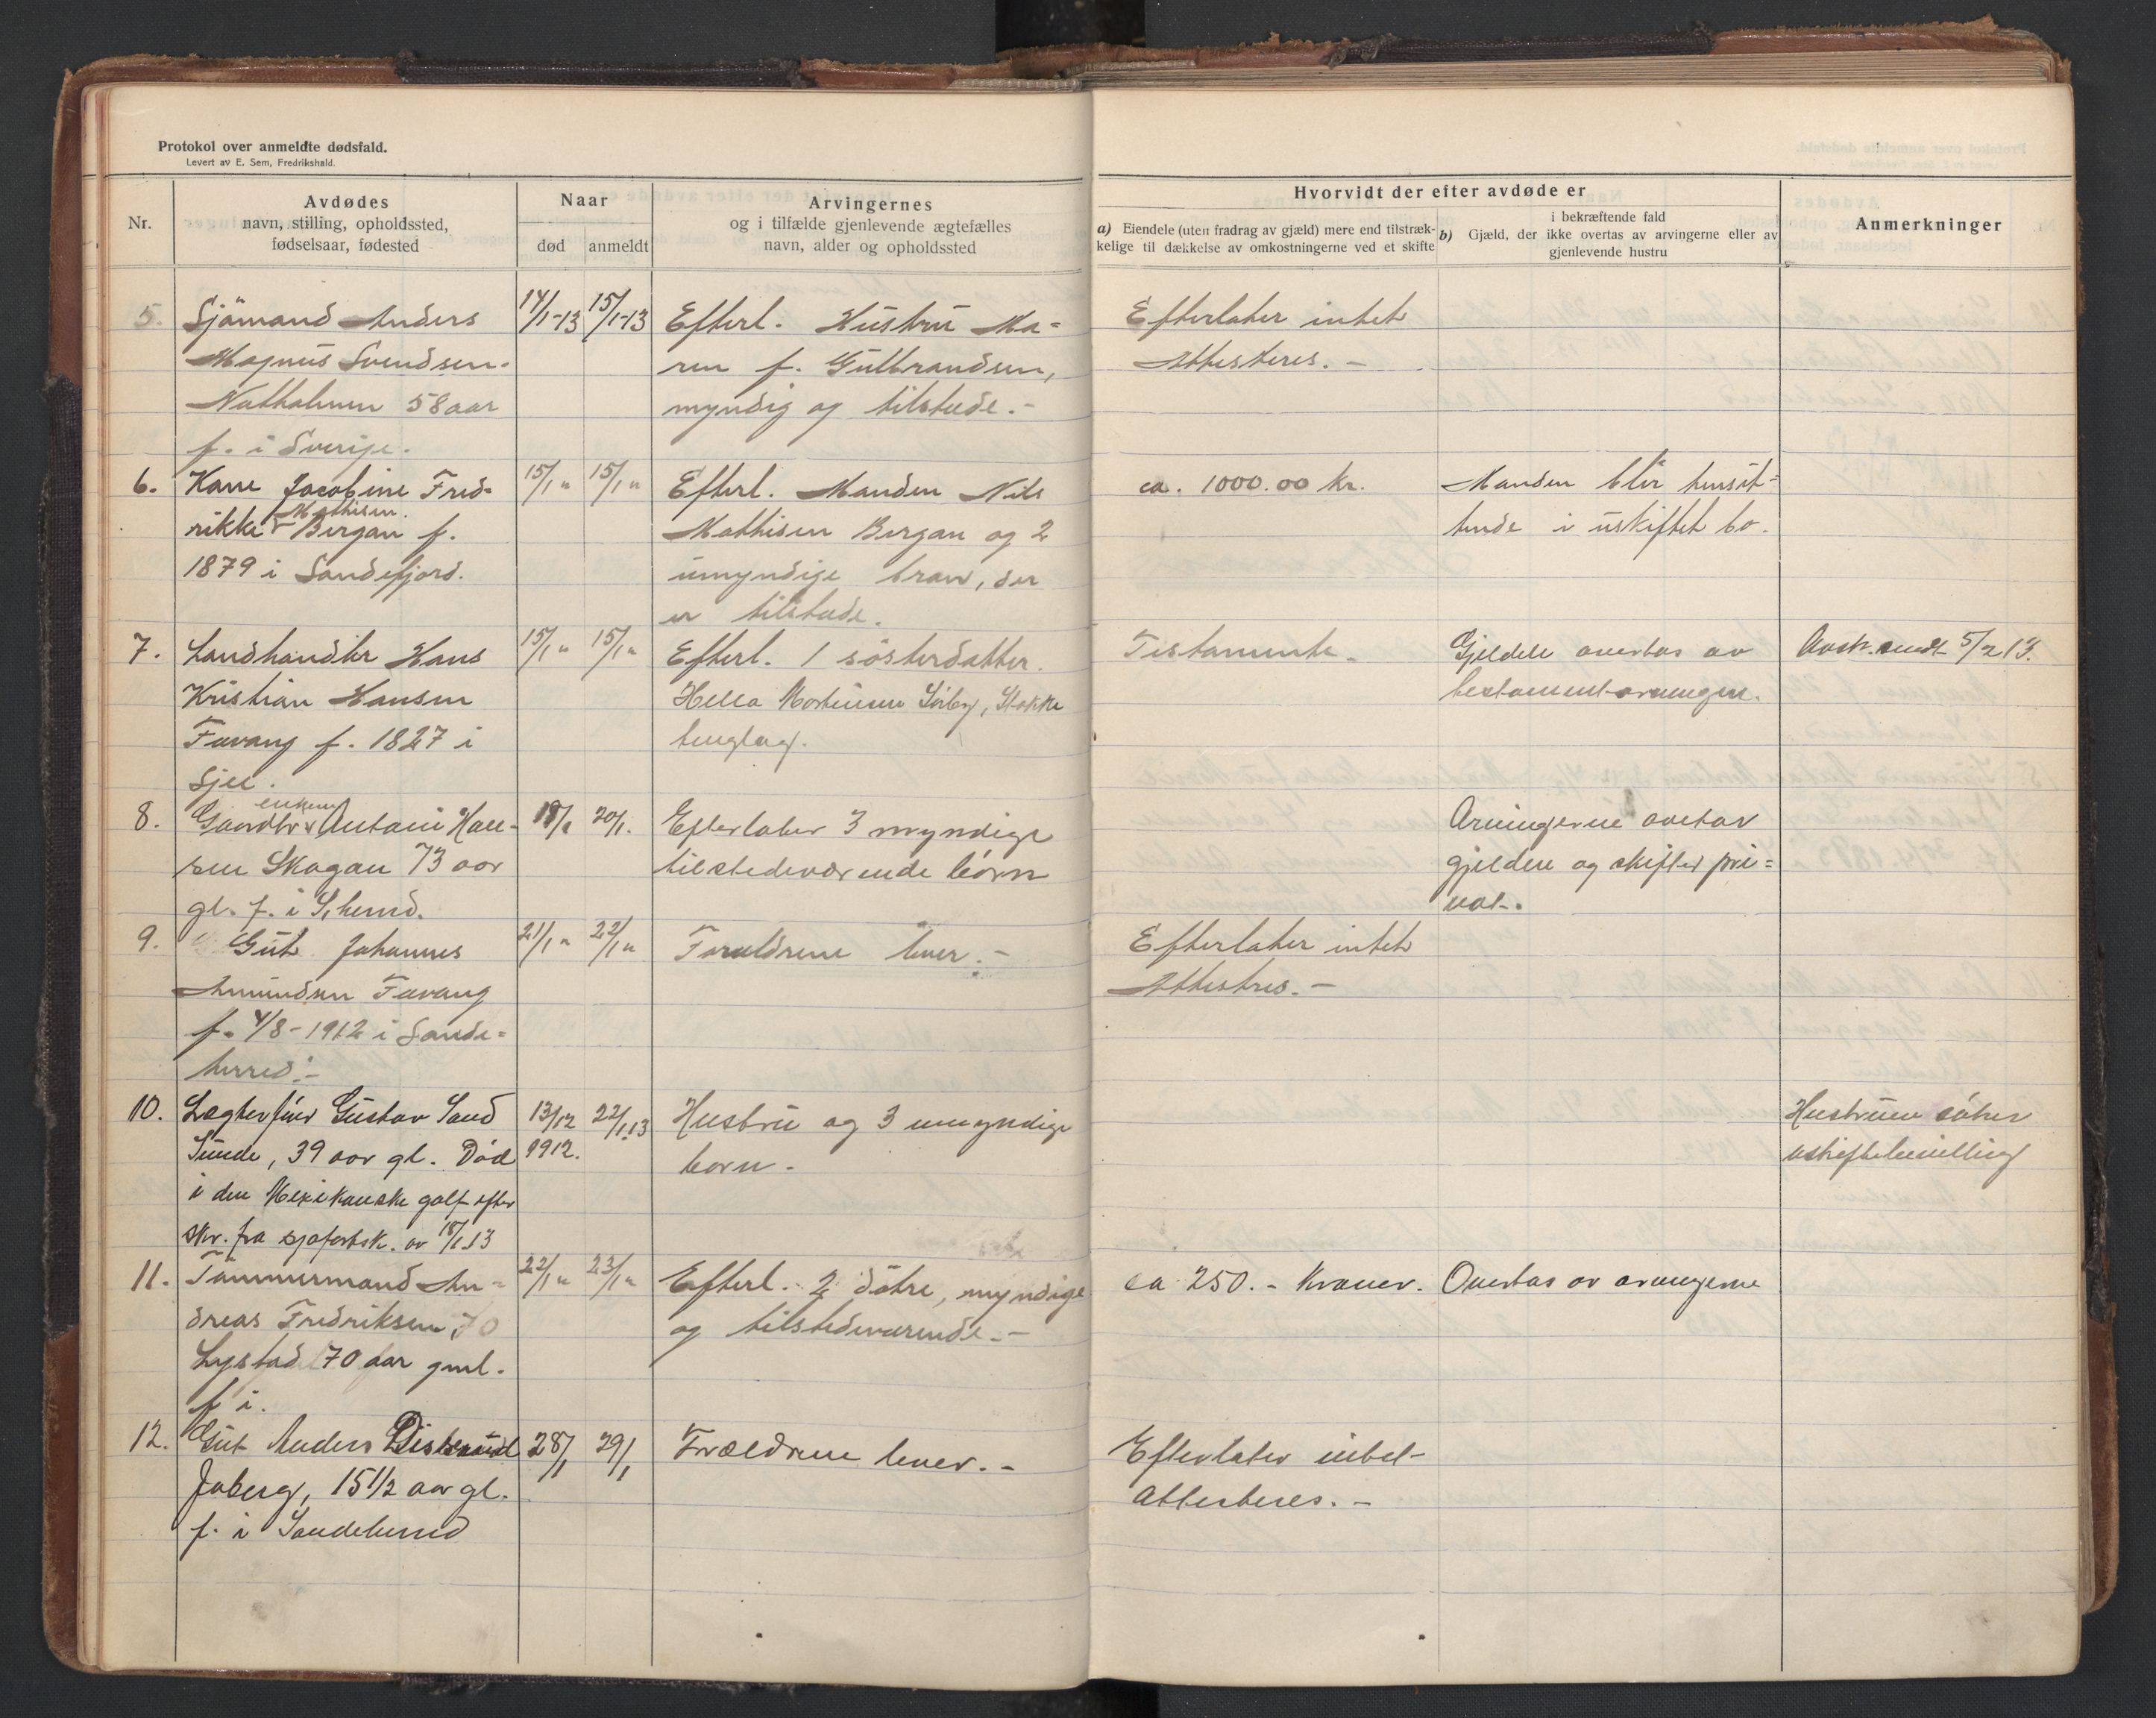 Protokol over anmeldte dødsfald.
Levert av E. Sem, Fredrikshald.
Nr.
Avdødes
navn, stilling, opholdssted,
fødselsaar, fødested
Naar
død
anmeldt
Arvingernes
og i tilfælde gjenlevende ægtefælles
navn, alder og opholdssted
Hvorvidt der efter avdøde er
a) Eiendele (uten fradrag av gjæld) mere end tilstræk-
kelige til dækkelse av omkostningerne ved et skifte
i bekræftende fald
b) Gjæld, der ikke overtas av arvingerne eller av
gjenlevende hustru
Anmerkninger
5. Sjömand Anders
Magnus Svendsen
Natholmen 58 aar
f. i Sverige.
14/1-13 15/1-13
Efterl. Hustru Ma-
ren f. Gulbrandsen,
myndig og tilstede.-
Efterlater intet
Attesteres. -
6. Kone Jacobine Fred-
Mathisen
rikke Bergan f.
1879 i Sandefjord.
15/1 " 15/1 "
Efterl. Manden Nils
Mathisen Bergan og 2
umyndige bran, der
er tilstede.
ca. 1000.00 kr.
Manden blir hensit-
tende i uskiftet bo.
7. Landhandler Hans
Kristian Hansen
Fevang f. 1827 i
15/1 " 15/1 "
Efterl. 1 sösterdatter.
Stokke
tinglag.
Testamente.
Gjelden overtas av
testamentarvingen.
Avsk. sendt 5/2 13.
8.
enken
Gaardbr. Antoni Han-
sen Skogan 73 aar
gl. f. i
19/1 20/1.
Efterlater 3 myndige
tilstedeværende börn
Arvingerne overtar
gjelden og skifter pri-
vat.
9. Gut Johannes
Amundsen Fevang
f. 4/8-1912 i Sande-
herred.-
21/1 " 22/1 "
Foreldrene lever.-
Efterlater intet
Attestres. -
10. Gustav Sand
Sunde, 39 aar gl. Död
i den Mexikanske golf efter
skr. fra sjøfartsk. av 18/1 13
13/12 22/1.13
1912.
Hustru og 3 umyndige
born.
Hustruen söker
uskiftebevilling
11. Tömmermand An-
dreas Fredriksen, 70
Lystad 70 aar gml.
f i.
22/1 " 23/1 "
Efterl. 2 dötre, myndige
og tilstedeværende.-
ca 250.- Kroner.
Overtas av arvingerne
12. Gut Anders
Joberg, 15 1/2 aar gl.
f. i Sandeherred
28/1 29/1
Forældrene lever. -
Efterlater intet
Attesteres. -